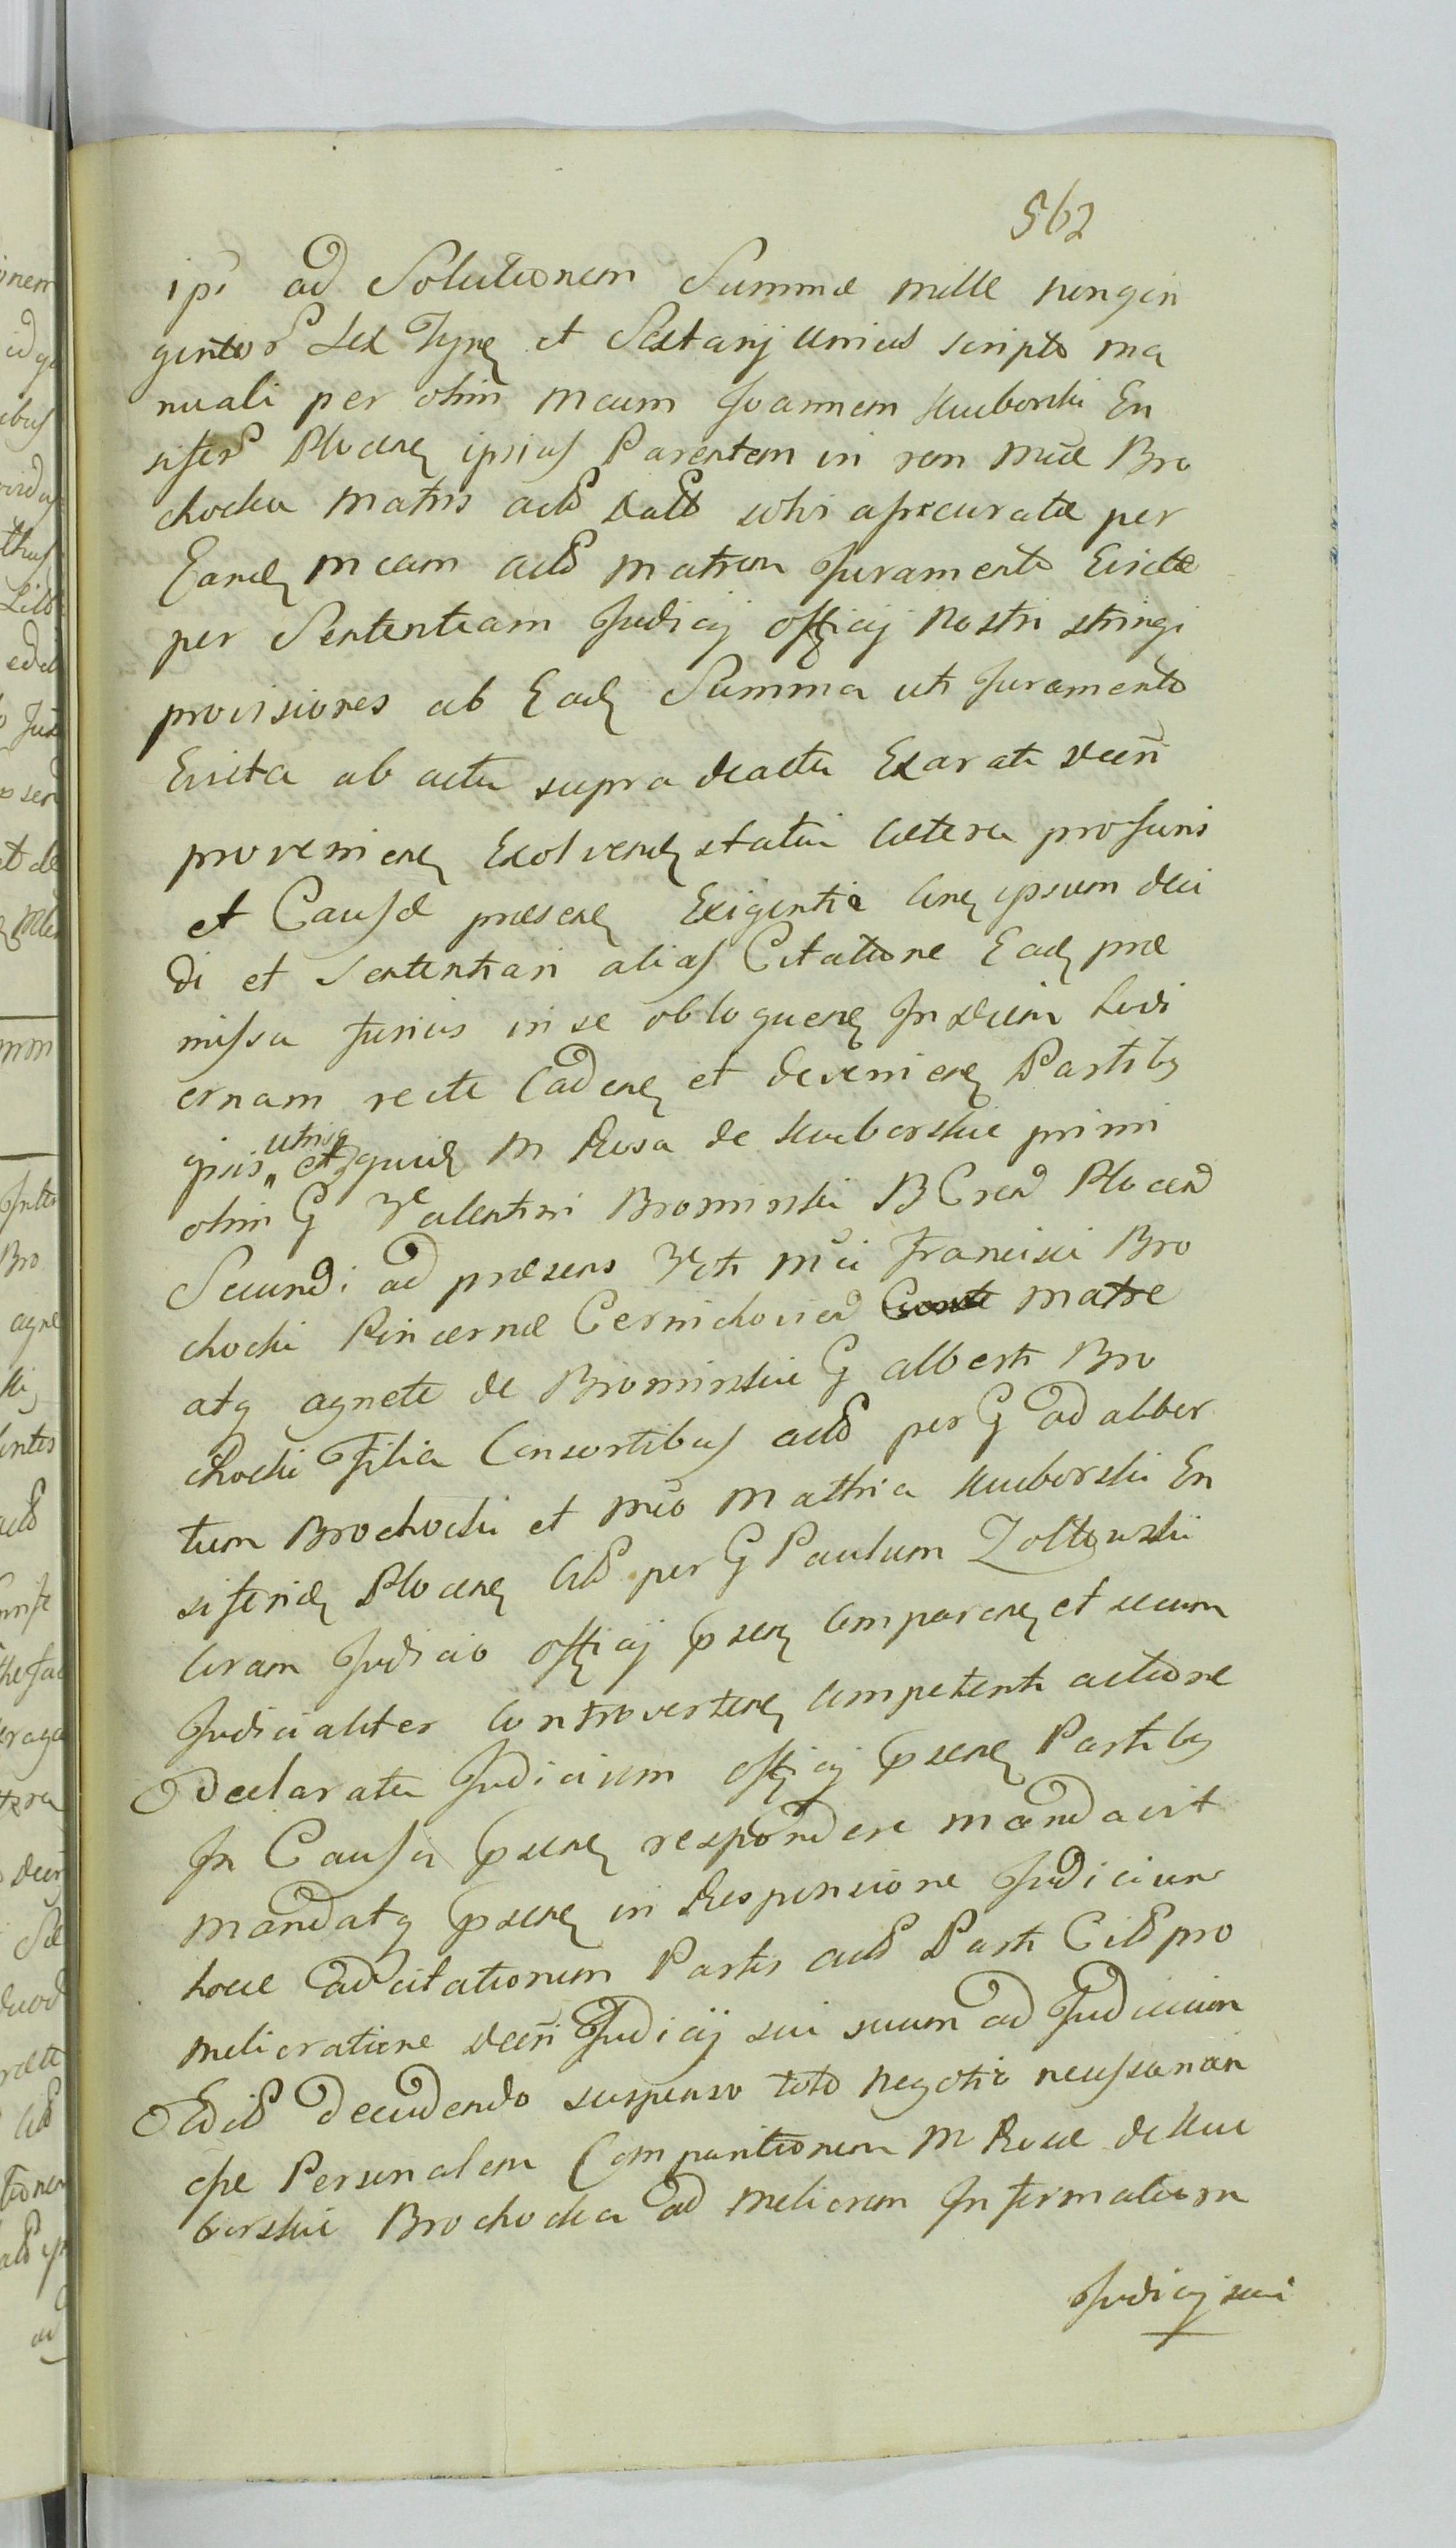 562
ipi ad Solutionem Summæ mille nongen
gentor Sex Tynf et Sextarij unius scripto ma
nuali per olim Mcum Joannem Kuborski En
siferum Plocen ipsius Parentem in rem Mcæ Bro
chocka Matris act dato solvi assecuratæ per
Eand Mcam act Matrem Juramento Evictæ
per Sententiam Judicij officij Nostri stringi
provisiones ab Ead Summa uti Juramento
Evicta ab actu supra Exarati Decri
provenien Exolven statui cætera pro Juris
et Causæ præsen Exigentia ipsum deci
di et Sententiari alias Citatione Ead præ
missa fusius in se obloquen In Diem hodi
ernam recte Caden et devenien Partibus
ipsis utrisq et quid M Rosa de Kuborskie primi
olim G Valentini Brominski B C Plocen
Secundi ad præsens Voti Mci Francisci Bro
chocki Pincernæ Czernichovien Matre
atq Agnete de Brominskie G Alberti Bro
chocki Filia Consortibus act per G ad Alber
tum Brochocki et Mco Mathia Kuborski En
siferid Plocen Cit per G Paulum Zoltowski
Coram Judicio officij psen Comparen et secum
Judicialiter Controverten Competenti actione
Declarata Judicium officij psen Partibus
In Causa psen respondere mandavit
mandatq psen in Responsione Judicium
hocce ad Citationem Partis act Parti Cit pro
melioratione Decri Judicij sui suum ad Judicium
decidendo suspenso toto negotio necessariam
esse Personalem Comparitionem M Rosæ de Ku
borskie Brochocka ad meliorem Informationem
Judicij sui